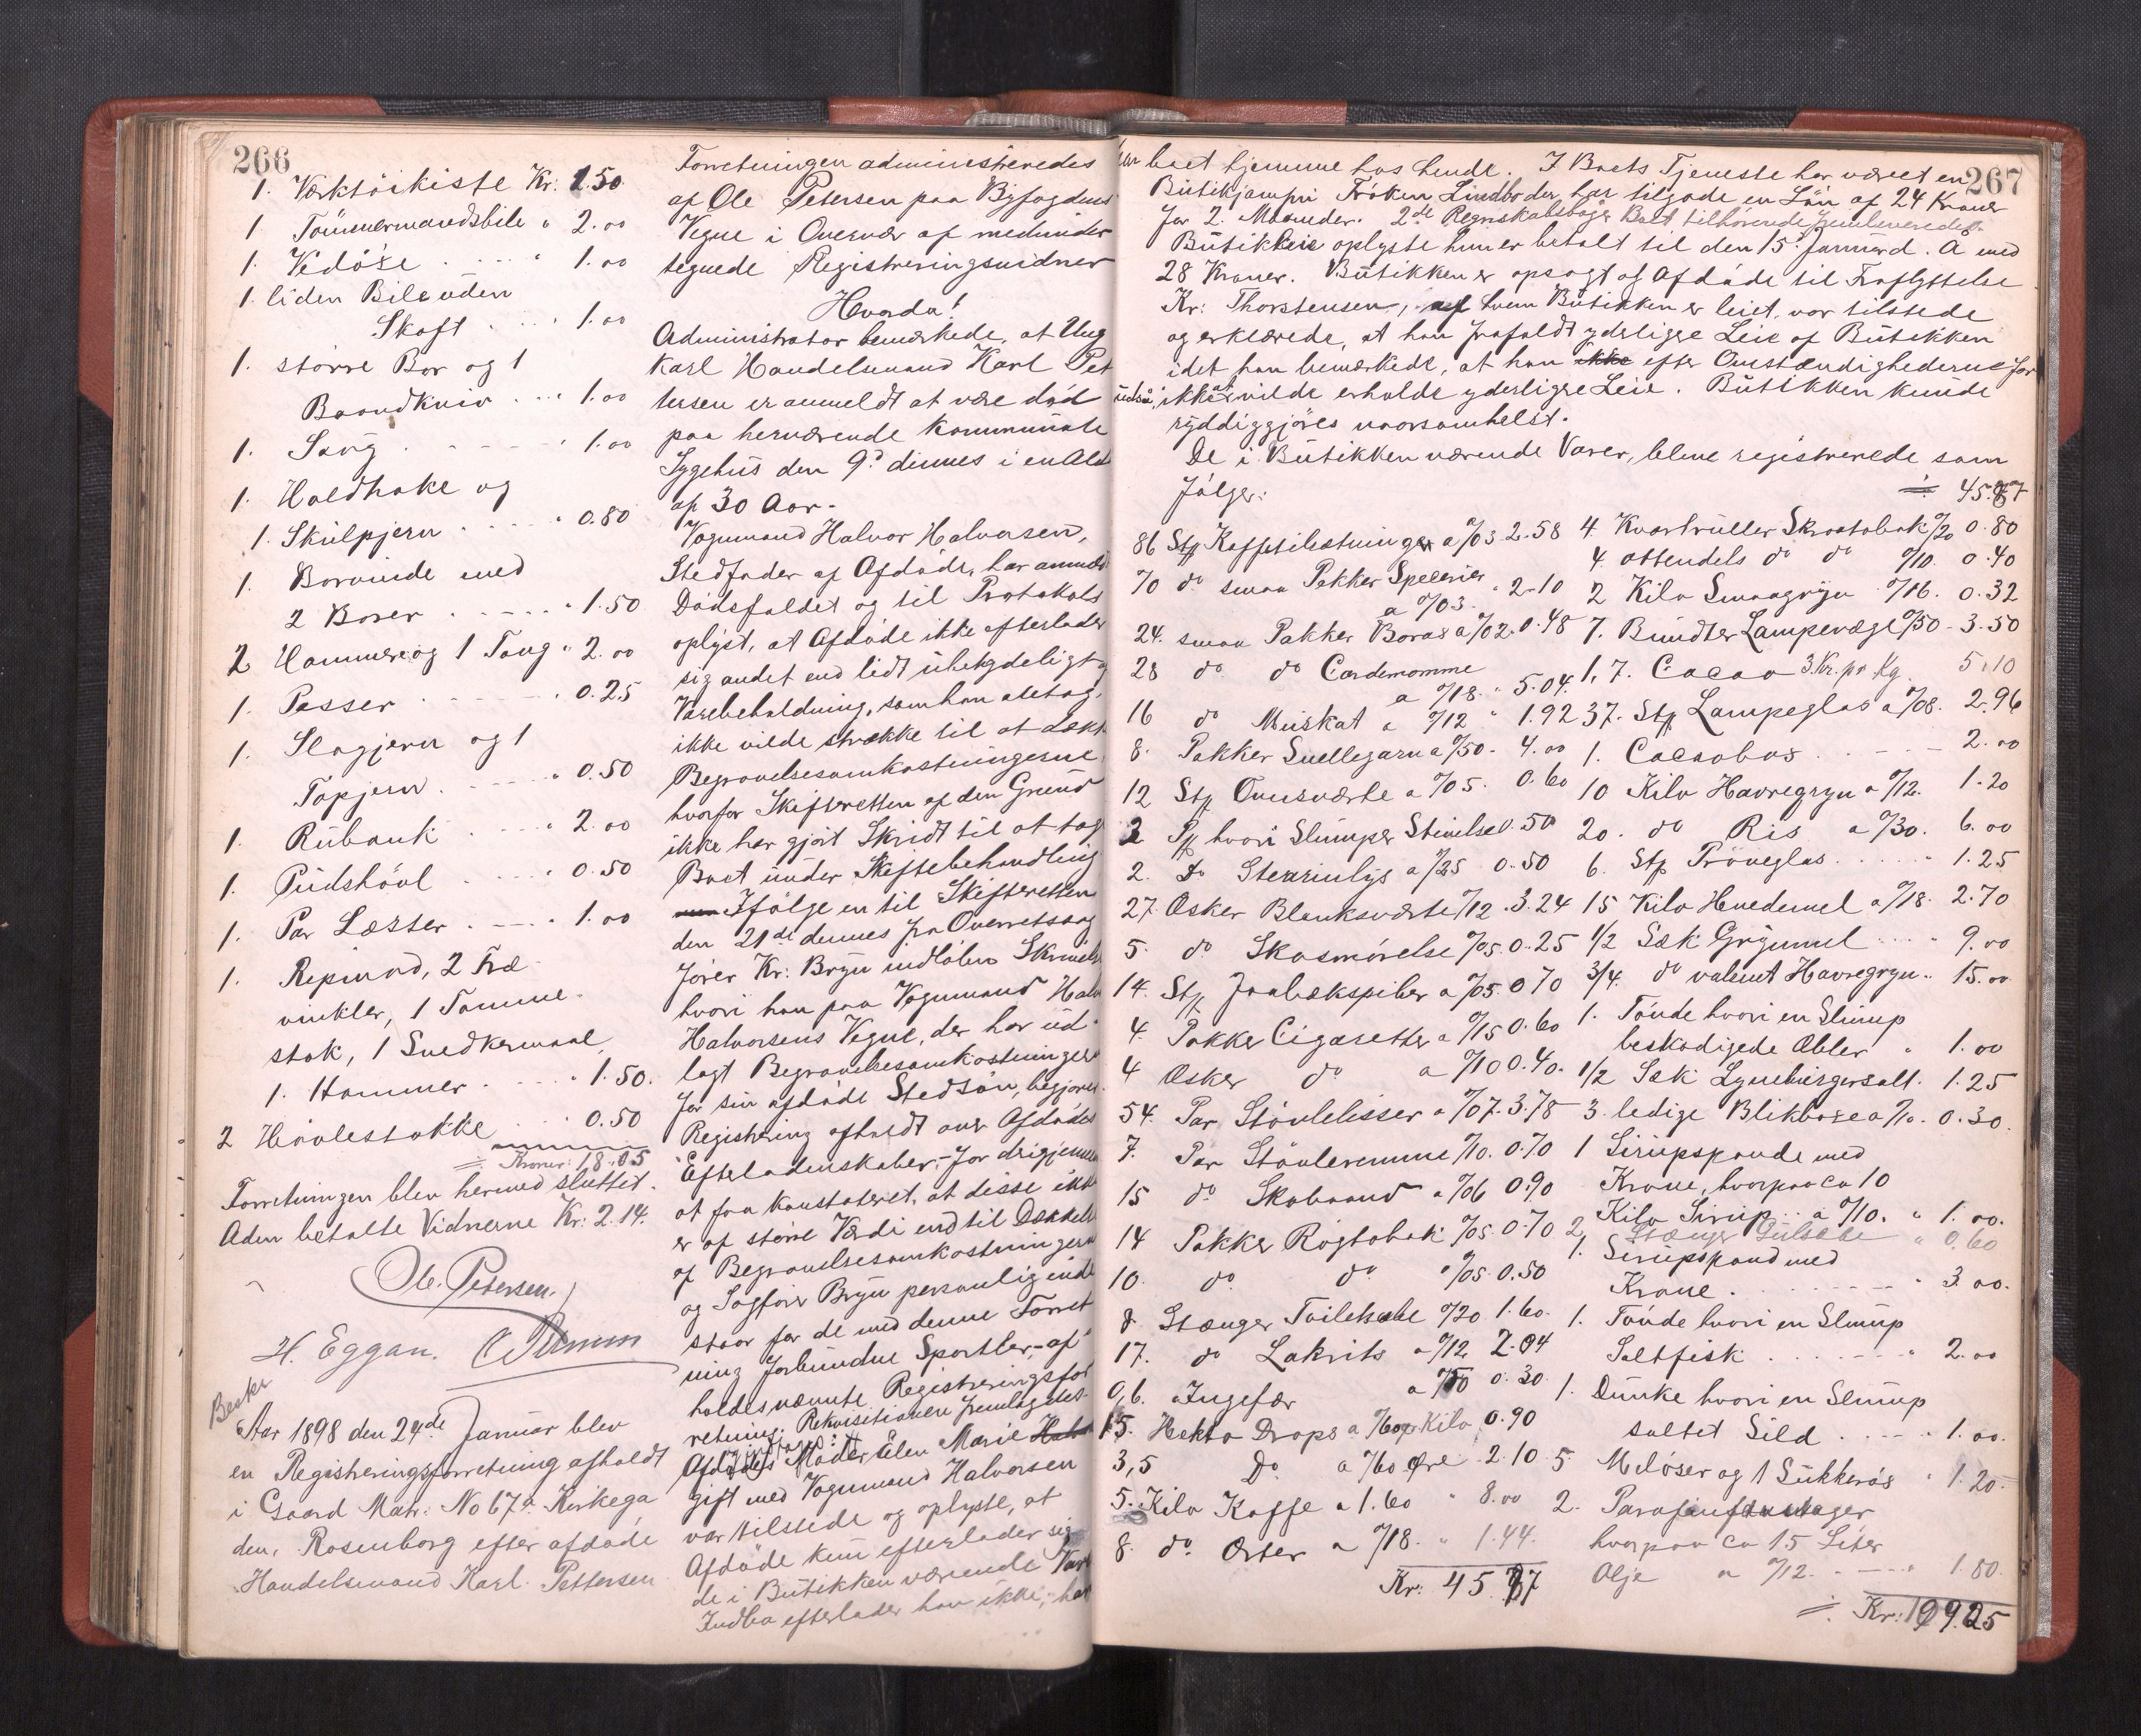 266
1. Værktöikiste Kr: 1.50
1 Tömmermandsbile " 2.00
1. Vedöxe " 1.00
1. liden Bile uden
Skaft 1.00
1. större Bor og 1
Baandkniv 1.00
1. Saug 1.00
1. Holdhake og
1. Skülpjern " 0.80
1. Borvinde med
2 Borer " 1.50
2 Hammere og 1 Tang " 2.00
1. Passer " 0.25
1. Slagjern og 1
Töpjern " 0.50
1. Rübank " 2.00
1. Püdshövl " 0.50
1. Par Læster " 1.00
1. Repmaad, 2 Træ
vinkler, 1 Tomme-
stok, 1 Snedkermaal
1. Hammer " 1.50.
2 Hövlestokke 0.50
Kroner: 18.05
Forretningen blev hermed sluttet.
Aden betalte Vidnerne Kr: 2.14.
Ole Petersen.
H. Eggan.
Aar 1898 den 24de Januar blev
en Registreringsforretning afholdt
i Gaard Matr: No 67a Kirkega
den, Rosenborg efter afdøde
Handelsmand Karl Pettersen
Forretningen administreredes
af Ole Petersen paa Byfogdens
Vegne i Overvær af medunder
tegnede Registreringsvidner
Hvorda!
Administrator bemærkede, at Ung
karl Handelsmand Karl Pet
tersen er anmeldt at være død
paa herværende Kommunale
Sygehus den 9d dennes i en Ald
af 30 Aar.
Vognmand Halvor Halvorsen,
Stedfader af Afdøde, har anmeld
Dødsfaldet og til Protokols
oplyst, at Afdøde ikke efterlader
sig andet end lidt ubetydeligt
Varebeholdning, som han antog,
ikke vilde strække til at dække
Begravelsesomkostningerne,
hvorfor Skifteretten af den Grund
ikke har gjort Skridt til at tag
Boet under Skiftebehandling
Ifølge en til Skifteretten
den 21de dennes fra Overretssag
fører Kr: Bryn indløben Skrivelse
hvori han paa Vognmand Halv
Halvorsens Vegne, der har ud-
lagt Begravelsesomkostningerne
for sin afdøde Stedsøn, begjæres
Registrering afholdt over Afdødes
Efterladenskaber, for derigjennem
at faa konstateret, at disse ikke
er af større Værdi end til Dækkelse
af Begravelsesomkostningerne
og Sagfører Bryn personlig inde
staar for de med denne Forret
ning forbundne Sportler, af-
holdes nævnte Registreringsfor
retning. Rekvisitionen fremlagdes.
Afdødes Moder Elen Marie
gift med Vognmand Halvorsen
var tilstede og oplyste, at
Afdøde kun efterlader sig
de i Butikken værende Vare
Indbo efterlader han ikke, han
267
har boet hjemme hos hende. I Boets Tjeneste har været en
Butikjomfru Frøken Lindbo der har tilgode en Løn af 24 Kroner
for 2. Maaneder. 2de Regnskabsbøger Boet tilhørende fremleveredes.
Butikleie oplyste hun er betalt til den 15d Januar d. A med
28 Kroner. Butikken er opsagt af Afdøde til Fraflyttelse
Kr: Thorstensen, af hvem Butikken er leiet, var tilstede
og erklærede, at han frafaldt yderligere Leie af Butikken
idet han bemærkede, at han ikke efter Omstændighederne for
ikke vilde erholde yderligere Leie. Butikken kunde
ryddiggjøres naarsomhelst.
De i Butikken værende Varer, bleve registrerede som
følger:
86 Stp Kaffetilsetninger a 0/03 2.58
70 do smaa Pakker Specerier
a 0/03. " 2.10
24. smaa Pakker Borax a 0/02. 0.48
28 do do Cardemomme
a 0/18 " 5.04.
16 do Muskat a 0/12 " 1.92
8. Pakker Snellegarn a 0/50. 4.00
12 Stp Ovnsværte a 0/05. 0.60
2 Pp hvori Slumper Stivelse 0.50
2. Do Stearinlys a 0/25 0.50
27. Æsker Blanksværte 0/12. 3.24
5. do Skosmørelse 0/05. 0.25
14. Stp Jaabækspiber a 0/05. 0.70
4. Pakker Cigaretter a 0/15 0.60
4 Æsker do a 0/10 0.40.
54. Par Stövlelisser a 0/07. 3.78
7. Par Stövleremme 0/10. 0.70
15 do Skobaand a 0/06 0.90
14 Pakker Røgtobak 0/05. 0.70
10. do do 0/05. 0.50
8 Stænger Toiletsæbe 0/20 1.60.
17. do Lakrits a 0/12 2.04
0,6. Ingefær a 0/50 0.30.
15. Hekto Drops a 0/60 pr Kilo 0.90
3,5 Do a 0/60 Øre 2.10
5. Kilo Kaffe a 1.60 " 8.00
8. do Erter a 0/18. " 1.44.
Kr: 45.87
45.87
4. Kvartruller Skraatobak 0/20 0.80
4. ottendels do do 0/10. 0.40
2 Kilo Smaagryn 0/16. 0.32
7. Bundter Lampevæge 0/50 - 3.50
1,7. Cacao 3 Kr. pr Kg. 5.10
37. Stp Lampeglas a 0/08. 2.96
1. Cacaobox 2.00
10 Kilo Havregryn a 0/12. 1.20
20. do Ris a 0/30. 6.00
6. Stp Pröveglas 1.25
15 Kilo Hvedemel a 0/18. 2.70
1/2 Sæk Grynmel 9.00
3/4. do valset Havregryn 15.00
1. Tönde hvori en Slump
beskadigede Æbler " 1.00
1/2 Sæk Lyneburgersalt. 1.25
3. ledige Blikboxe a 0/10. 0.30.
1 Sirupspande med
Krane, hvorpaa ca 10
Kilo Sirup a 0/10. " 1.00.
2 Stænger Gulsæbe " 0.60
1. Sirupspand med
Krane " 3.00.
1. Tönde hvori en Slump
Saltfisk " 2.00
1. Dunke hvori en Slump
saltet Sild " 1.00.
5. Meløser og 1 Sukkerøs " 1.20.
2. Parafinfastager
hvorpaa ca 15 Liter
Olje a 0/12. 1.80.
Kr: 109.25